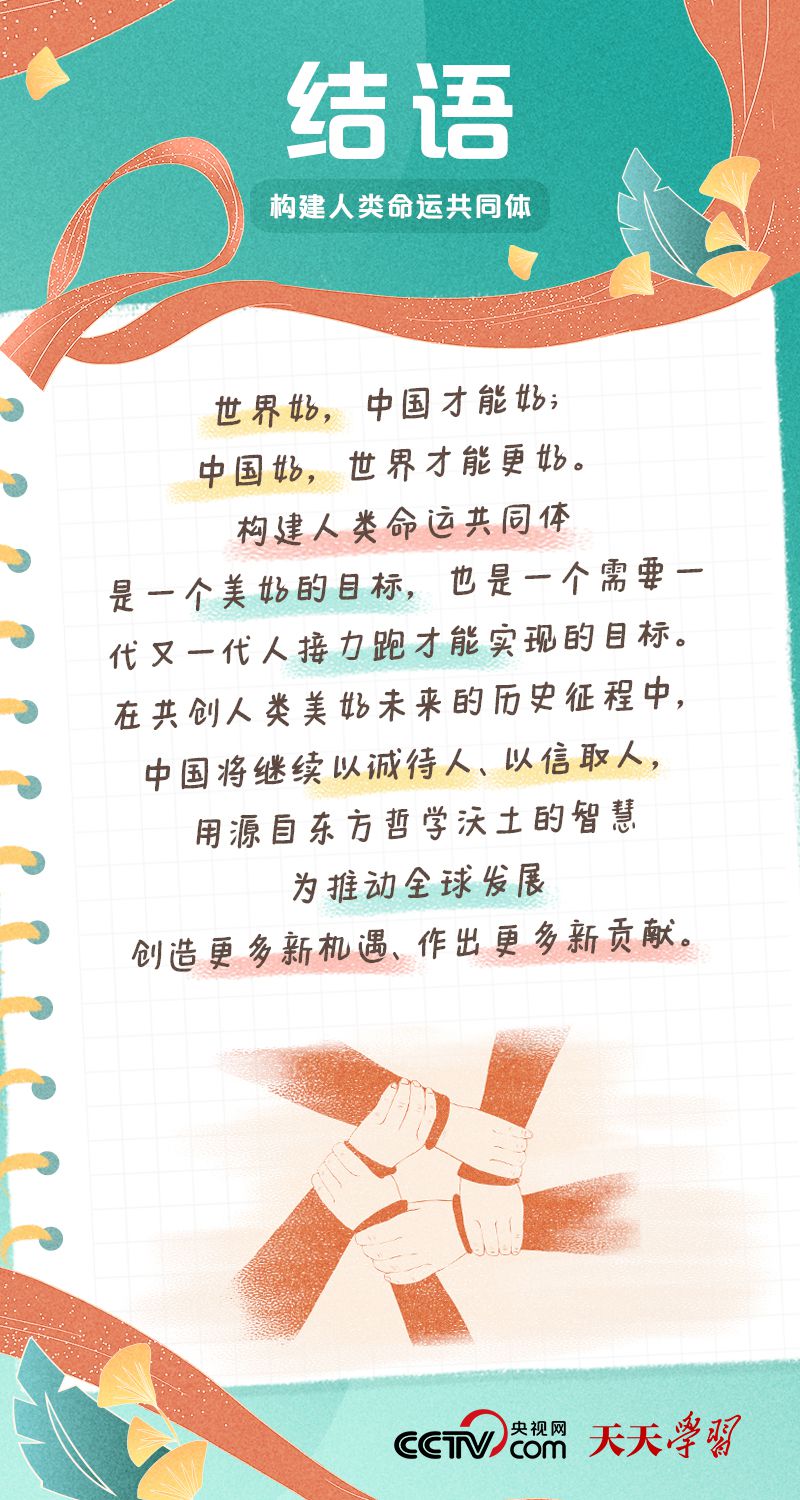 结语
构建人类命运共同体
世界好，中国才能好；
中国好，世界才能更好。
构建人类命运共同体
是一个美好的目标，也是一个需要一
代又一代人接力跑才能实现的目标。
在共创人类美好未来的历史征程中，
中国将继续以诚待人、以信取人，
用源自东方哲学沃土的智慧
为推动全球发展
创造更多新机遇、作出更多新贡献。
CCTV.com 央视网
天天学習